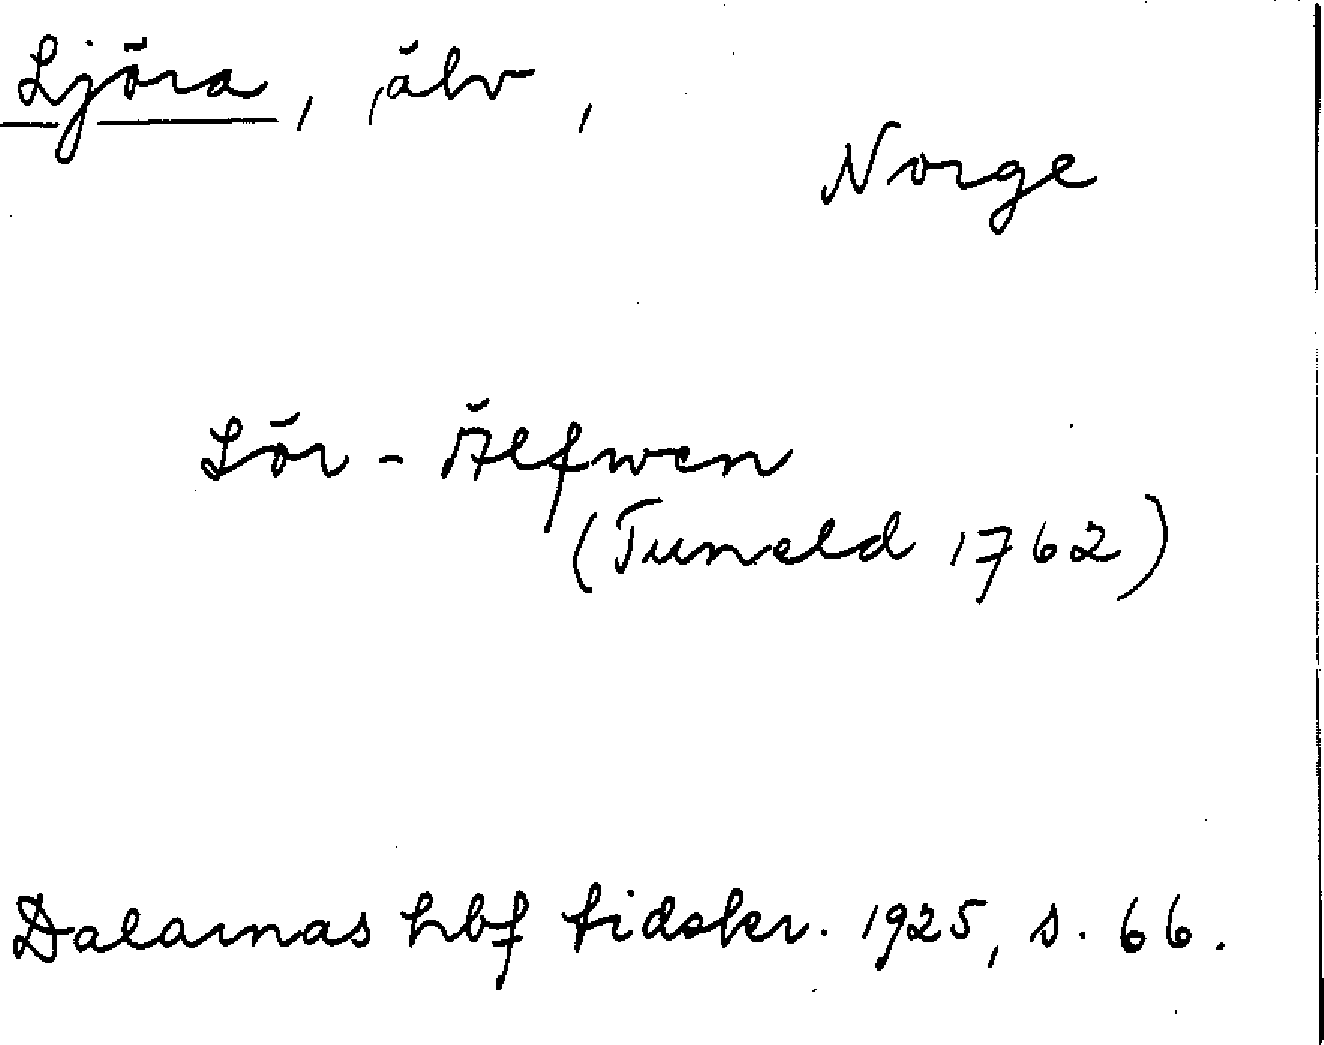 Ljöra, älv,
Norge
Lör-Älfwen
(Tuneld 1762)
Dalarnas hbf tidskr. 1925, s. 66.